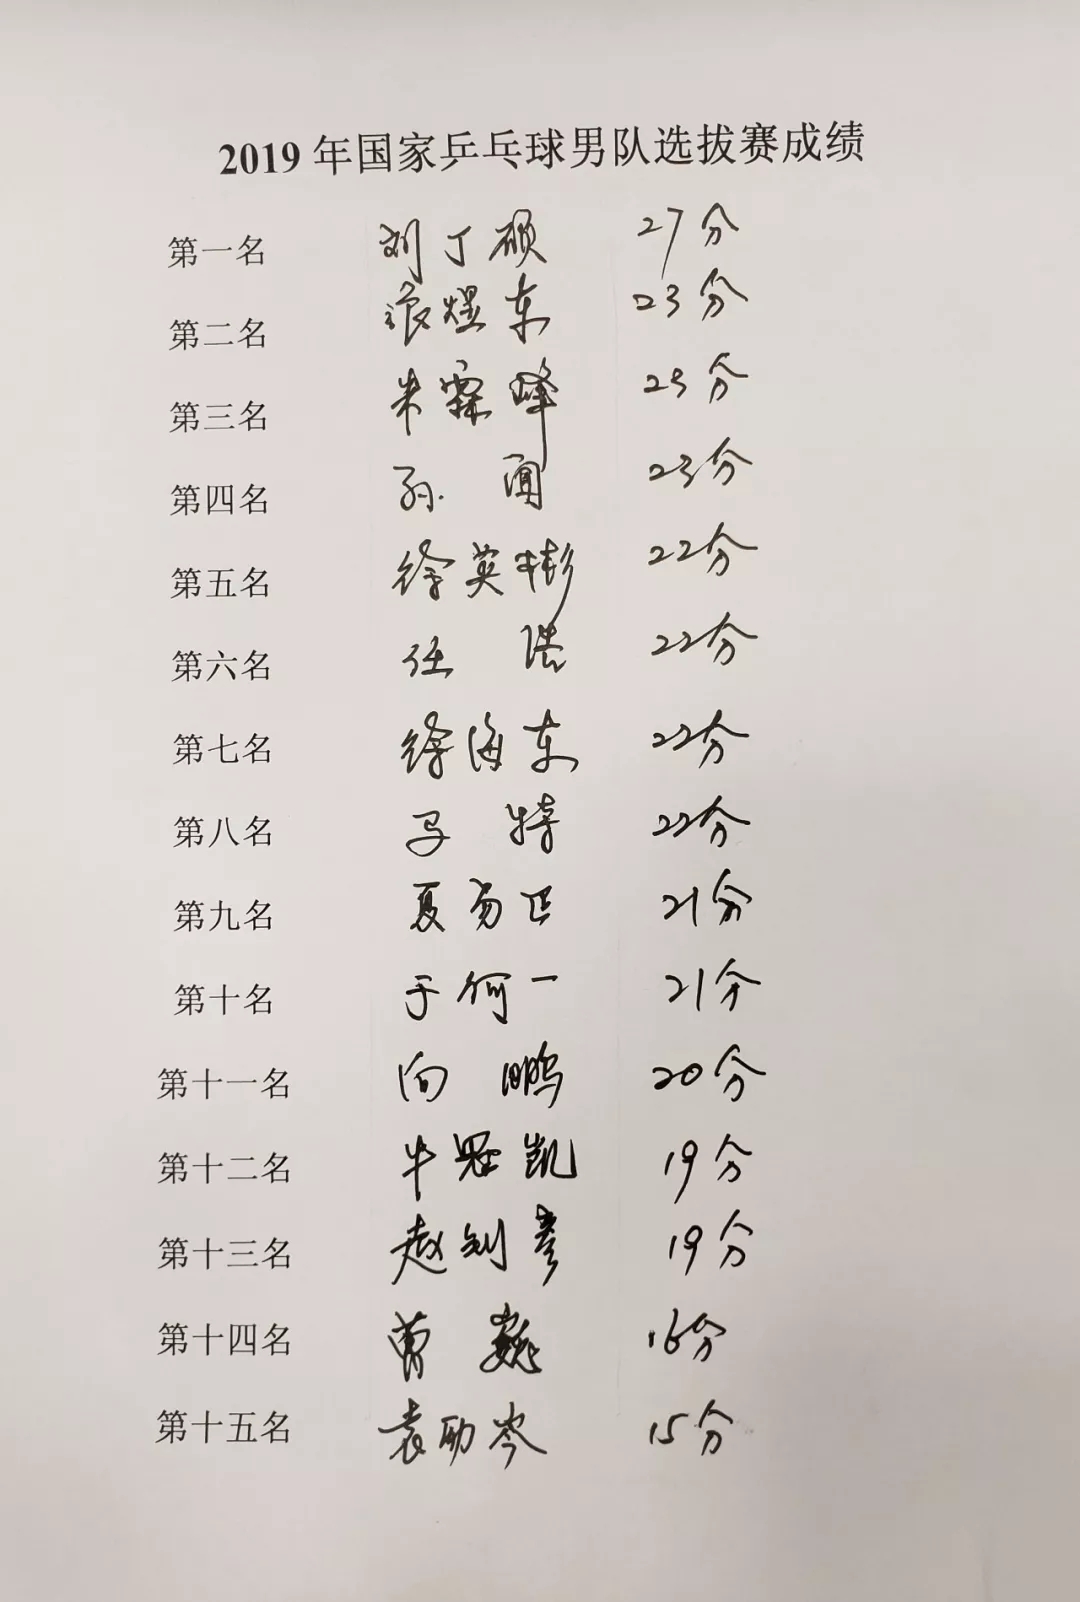 2019年国家乒乓球男队选拔赛成绩
第一名 刘丁硕 27分
第二名 张煜东 23分
第三名 朱霖峰 23分
第四名 孙闻 23分
第五名 徐英彬 22分
第六名 任浩 22分
第七名 徐海东 22分
第八名 马特 22分
第九名 夏易正 21分
第十名 于何一 21分
第十一名 向鹏 20分
第十二名 牛冠凯 19分
第十三名 赵钊彦 19分
第十四名 曹巍 16分
第十五名 袁励岑 15分